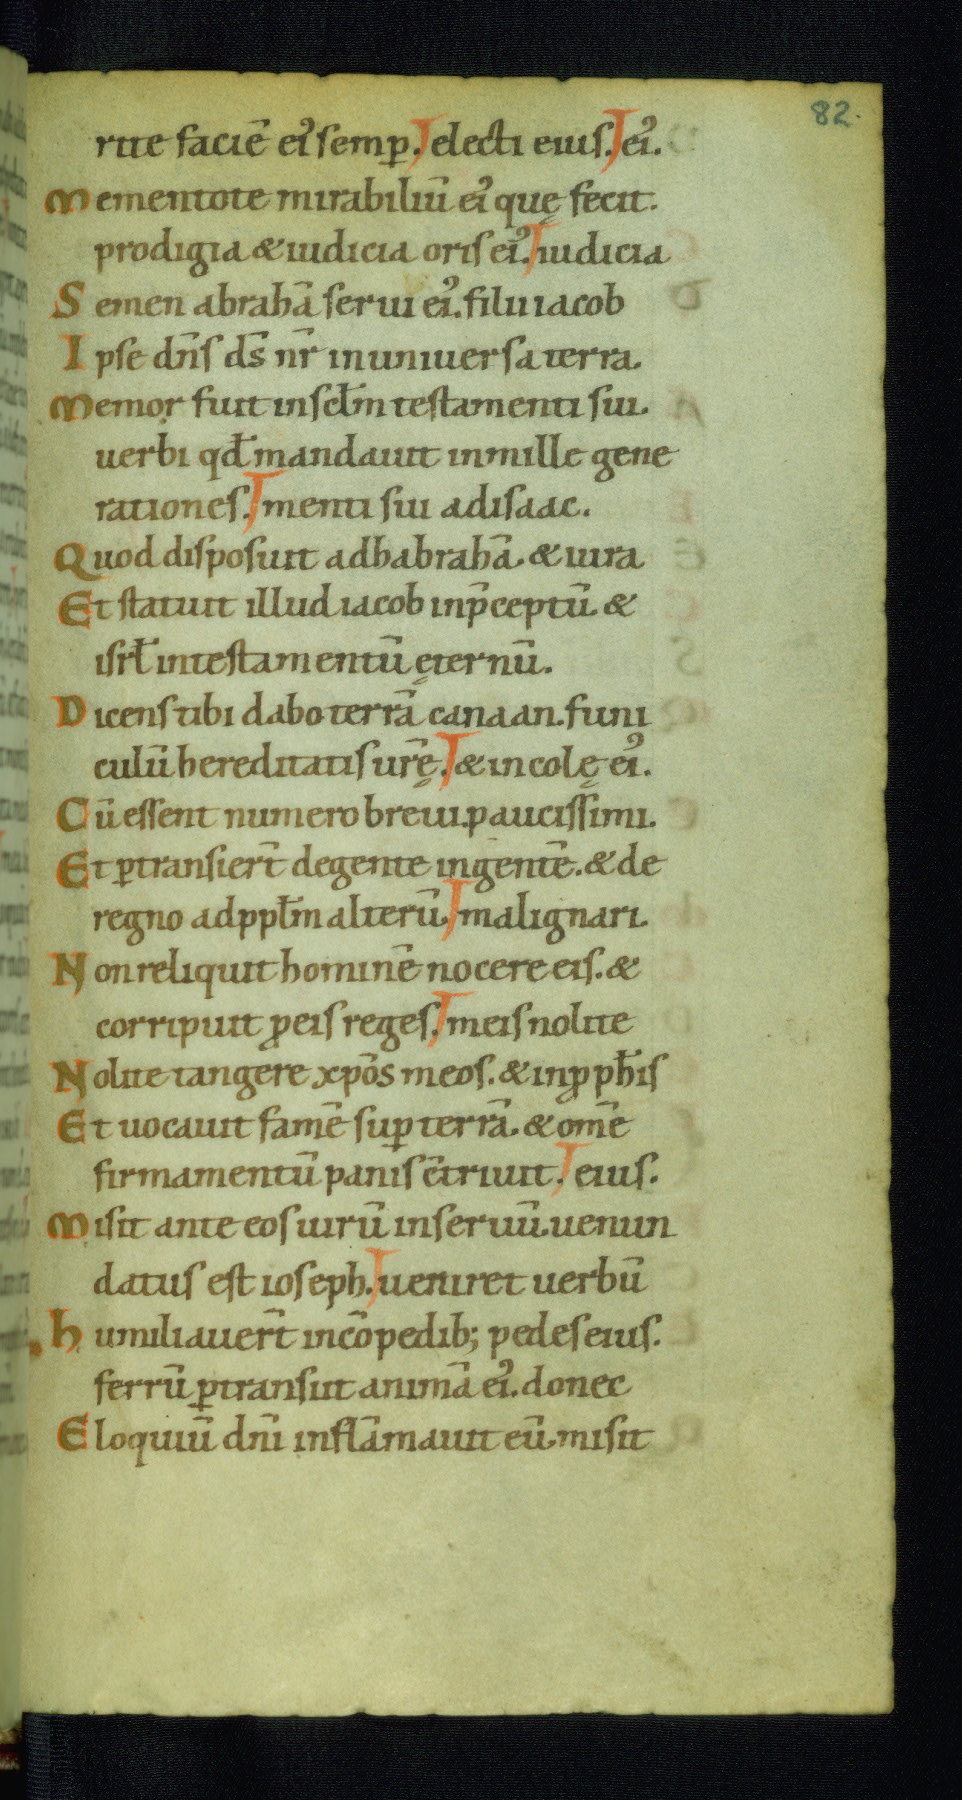 82.
rite faciē ei᾽ semꝑ. electi eius. ei᾽.
Mementote mirabiliū ei᾽ quę fecit.
prodigia & iudicia oris ei᾽. iudicia
Semen abrahā serui ei᾽. filii iacob
Ipse dn̄s ds̄ nr̄ in uniuersa terra.
Memor fuit in scl̄m testamenti sui.
uerbi qd̄ mandauit in mille gene
rationes. menti sui ad isaac.
Quod disposuit ad habrahā. & iura
Et statuit illud iacob in p̄ceptū &
isrl̄ in testamentū ęternū.
Dicens tibi dabo terrā canaan. funi
culū hereditatis urę̄. & incolę ei᾽.
Cū essent numero breui. paucissimi.
Et ꝑtransier̄t de gente in gentē. & de
regno ad ppl̄m alterū. malignari.
Non reliquit hominē nocere eis. &
corripuit ꝓ eis reges. meis nolite
Nolite tangere xp̄os meos. & in ꝓph̄is
Et uocauit famē suꝑ terrā. & om̄e
firmamentū panis c̄triuit. eius.
Misit ante eos uirū in seruū. uenun
datus est ioseph. ueniret uerbū
humiliauer̄t in cōpedib; pedes eius.
ferrū ꝑtransiit animā ei᾽. donec
Eloquiū dn̄i inflāmauit eū. misit